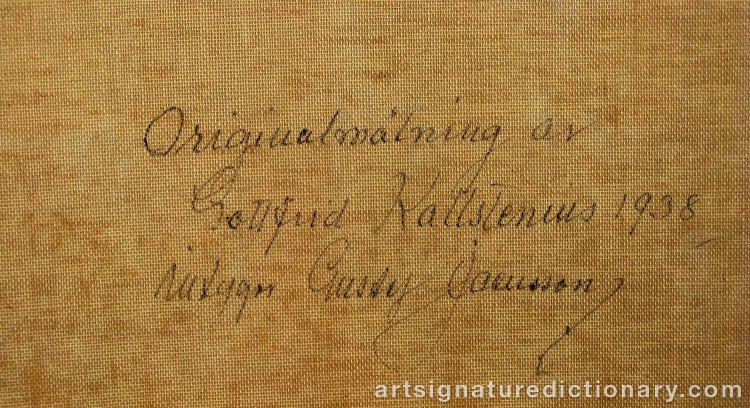 Originalmålning av
Gottfrid Kallstenius 1938
intygar Gustaf
artsignaturedictionary.com